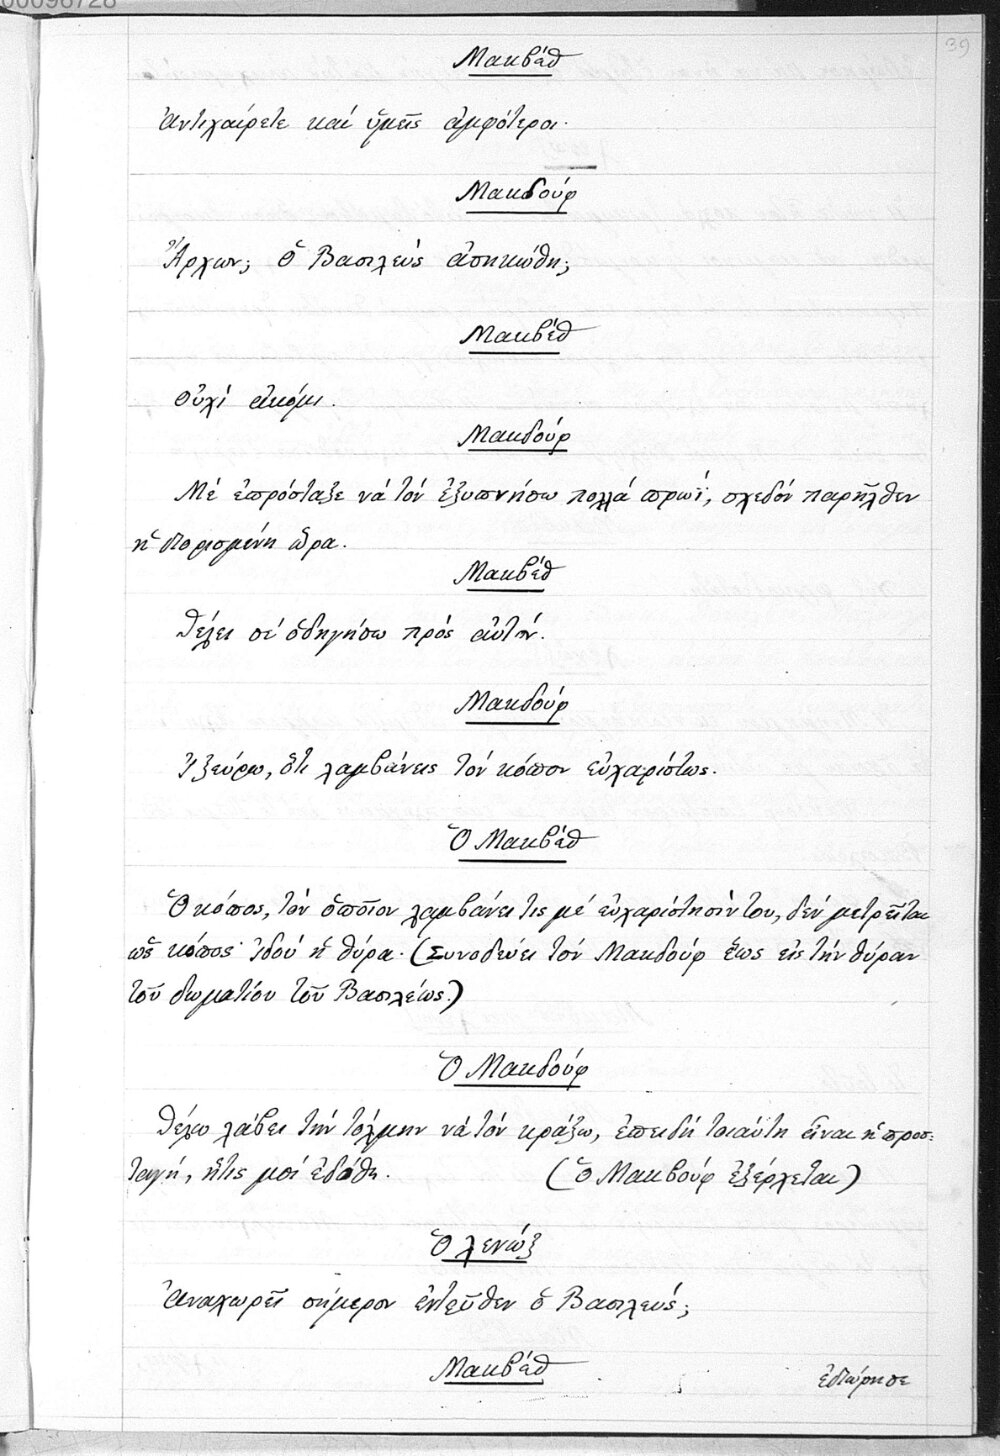 00096728
39
Μακβέθ
Ἀντιχαίρετε καί ὑμεῖς ἀμφότεροι.
Μακδούφ
Ἄρχων; ὁ Βασιλεύς ἐσηκώθη;
Μακβέθ
Οὐχί ἀκόμι.
Μακδούφ
Μέ ἐπρόσταξε νά τόν ἐξυπνήσω πολλά πρωΐ, σχεδόν παρῆλθεν
ἡ διορισμένη ὥρα.
Μακβέθ
Θέλει σέ ὁδηγήσω πρός αὐτόν.
Μακδούφ
Ἠξεύρω, ὅτι λαμβάνεις τόν κόπον εὐχαρίστως.
Ὁ Μακβέθ
Ὁ κόπος, τόν ὁποῖον λαμβάνει τις μέ εὐχαρίστησίν του, δέν μετρεῖται
ὡς κόπος· ἰδού ἡ θύρα. (Συνοδεύει τόν Μακδούφ ἕως εἰς τήν θύραν
τοῦ δωματίου τοῦ Βασιλέως.)
Ὁ Μακδούφ
Θέλω λάβει τήν τόλμην νά τόν κράξω, ἐπειδή τοιαύτη εἶναι ἡ προσ-
ταγή, ἥτις μοί ἐδόθη. (Ὁ Μακδούφ ἐξέρχεται)
Ὁ Λενώξ
Ἀναχωρεῖ σήμερον ἐντεῦθεν ὁ Βασιλεύς;
Μακβέθ
ἐδιώρισε